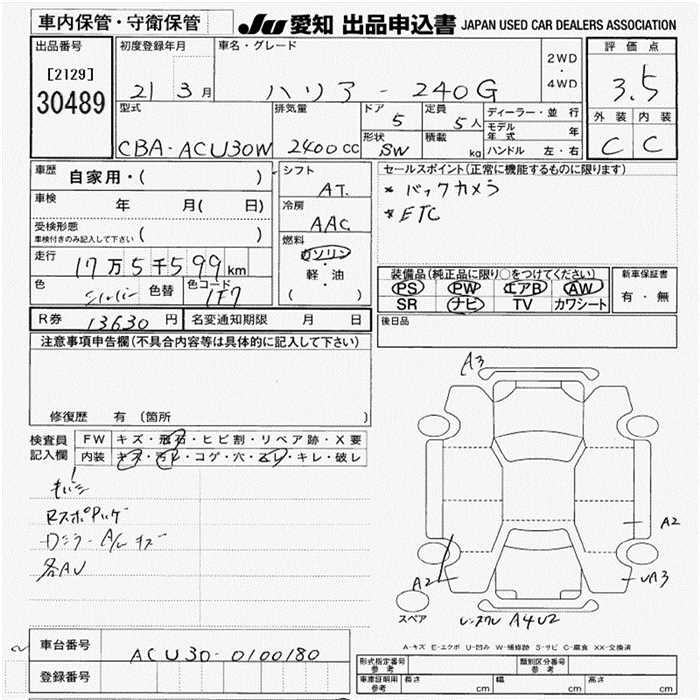 車内保管・守衛保管
JU 愛知 出品申込書 JAPAN USED CAR DEALERS ASSOCIATION
出品番号
[2129]
30489
初度登録年月
21 3月
車名・グレード
ハリアー 240G
2WD
・
4WD
評価点
3.5
外装 内装
C C
型式
CBA-ACU30W
排気量
2400cc
ドア
5
定員
5人
形状
SW
積載
kg
ディーラー・並行
モデル年式 年
ハンドル 左・右
車歴 自家用・( )
車検 年 月( 日)
受検形態
車検付きのみ記入して下さい ( )
走行 17万5千599km
色 シルバー 色替 色コード 1F7
シフト
AT
冷房
AAC
燃料
ガソリン
・
軽・油
( )
セールスポイント(正常に機能するものに限ります)
* バックカメラ
* ETC
装備品(純正品に限り○をつけてください)
PS PW エアB AW
SR ナビ TV カワシート
新車保証書
有・無
後日品
R券 13630円 名変通知期限 月 日
注意事項申告欄(不具合内容等は具体的に記入して下さい)
修復歴 有(箇所 )
検査員
記入欄
FW キズ・飛石・ヒビ割・リペア跡・X要
内装 キズ・汚れ・コゲ・穴・スレ・キレ・破レ
RスポPハゲ
Dミラー A/C キズ
各AU
A3
A2
A2
UA3
A4U2
スペア
A-キズ E-エクボ U-凹み W-補修跡 S-サビ C-腐食 XX-交換済
車台番号 ACU30-0100180
登録番号
形式指定番号
参考
類別区分番号
参考
車庫証明用
参考
長さ cm 幅 cm 高さ cm